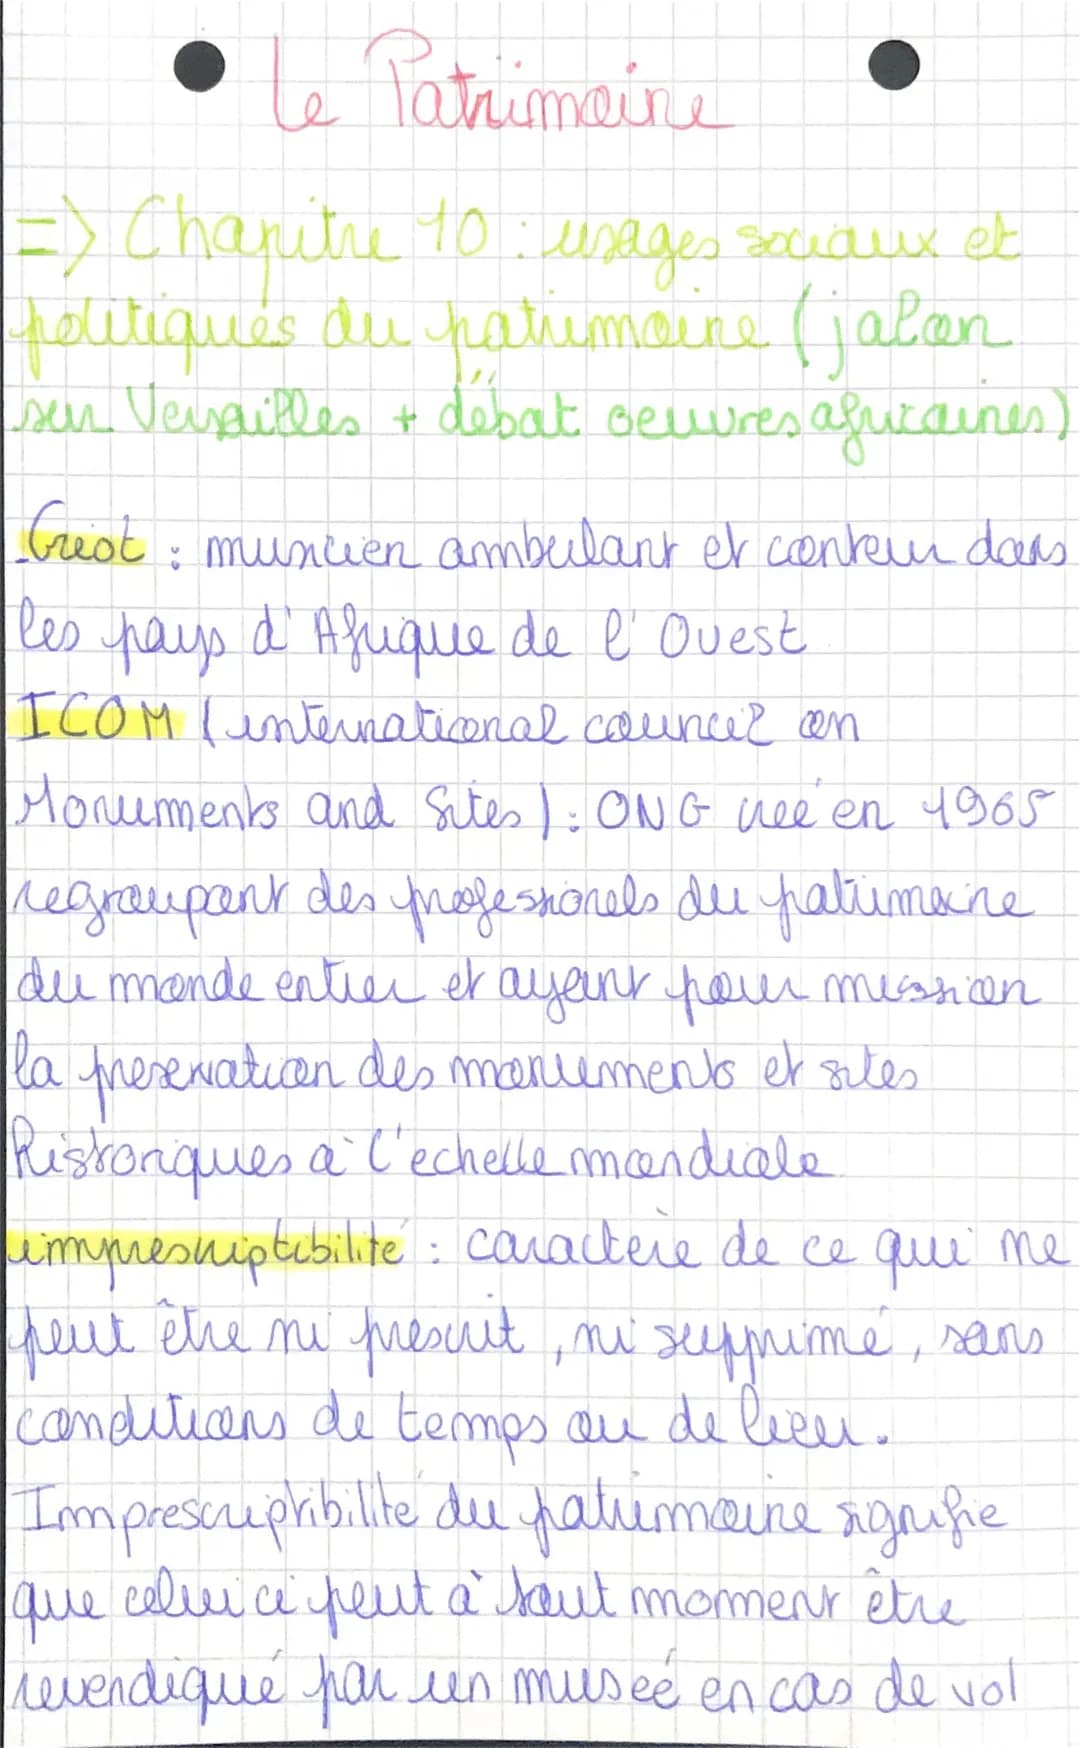 Le Patrimoine
=> Chapitre 10 : usages sociaux et
politiques du patrimoine (jalon
sur Versailles + débat oeuvres africaines)
Griot : musicien ambulant et conteur dans
les pays d'Afrique de l'Ouest
ICOM (international council on
Monuments and Sites) : ONG créé en 1965
regroupant des professionels du patrimoine
du monde entier et ayant pour mission
la préservation des monuments et sites
historiques à l'échelle mondiale
imprescriptibilité : caractère de ce qui ne
peut être ni prescrit, ni supprimé, sans
conditions de temps ou de lieu.
Imprescriptibilité du patrimoine signifie
que celui ci peut à tout moment être
revendiqué par un museé en cas de vol